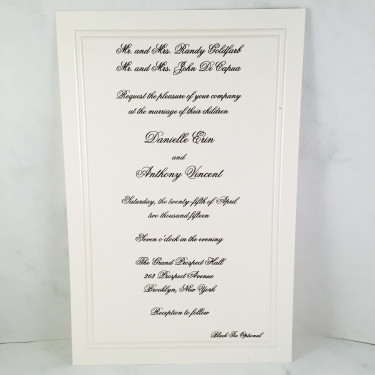 Mr. and Mrs. Randy Goldfarb
Mr. and Mrs. John Di Capua
Request the pleasure of your company
at the marriage of their children
Danielle Erin
and
Anthony Vincent
Saturday, the twenty-fifth of April
two thousand fifteen
Seven o'clock in the evening
The Grand Prospect Hall
262 Prospect Avenue
Brooklyn, New York
Reception to follow
Black Tie Optional